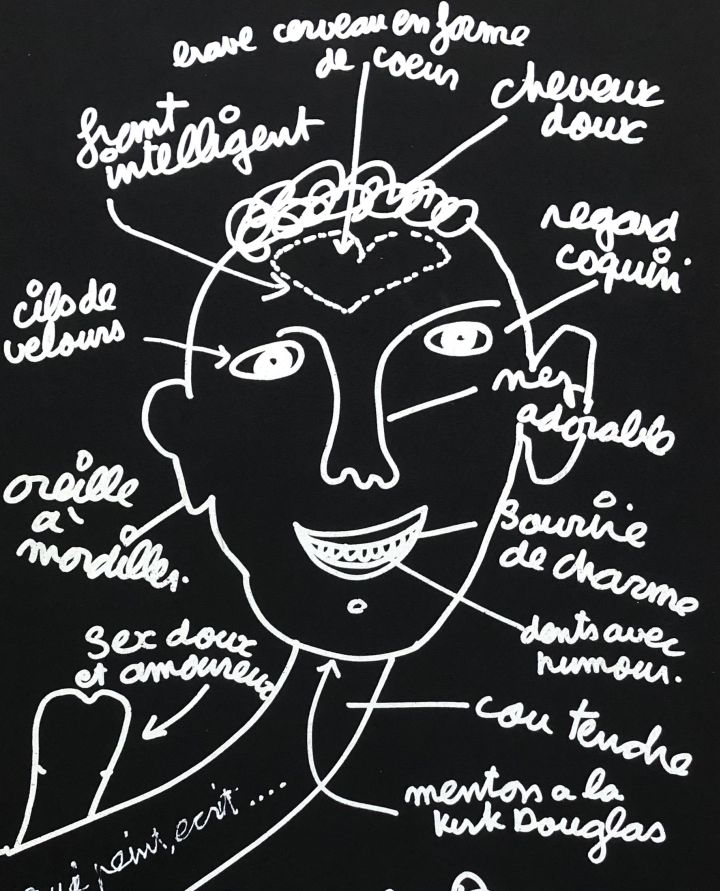 crane cerveau en forme
de coeur
cheveux
doux
front
intelligent
regard
coquin
cils de
velours
nez
adorable
oreille
a'
mordiller.
sourire
de charme
dents avec
humour.
sex doux
et amoureux
cou tendre
menton a la
Kirk Douglas
peint, ecrit....